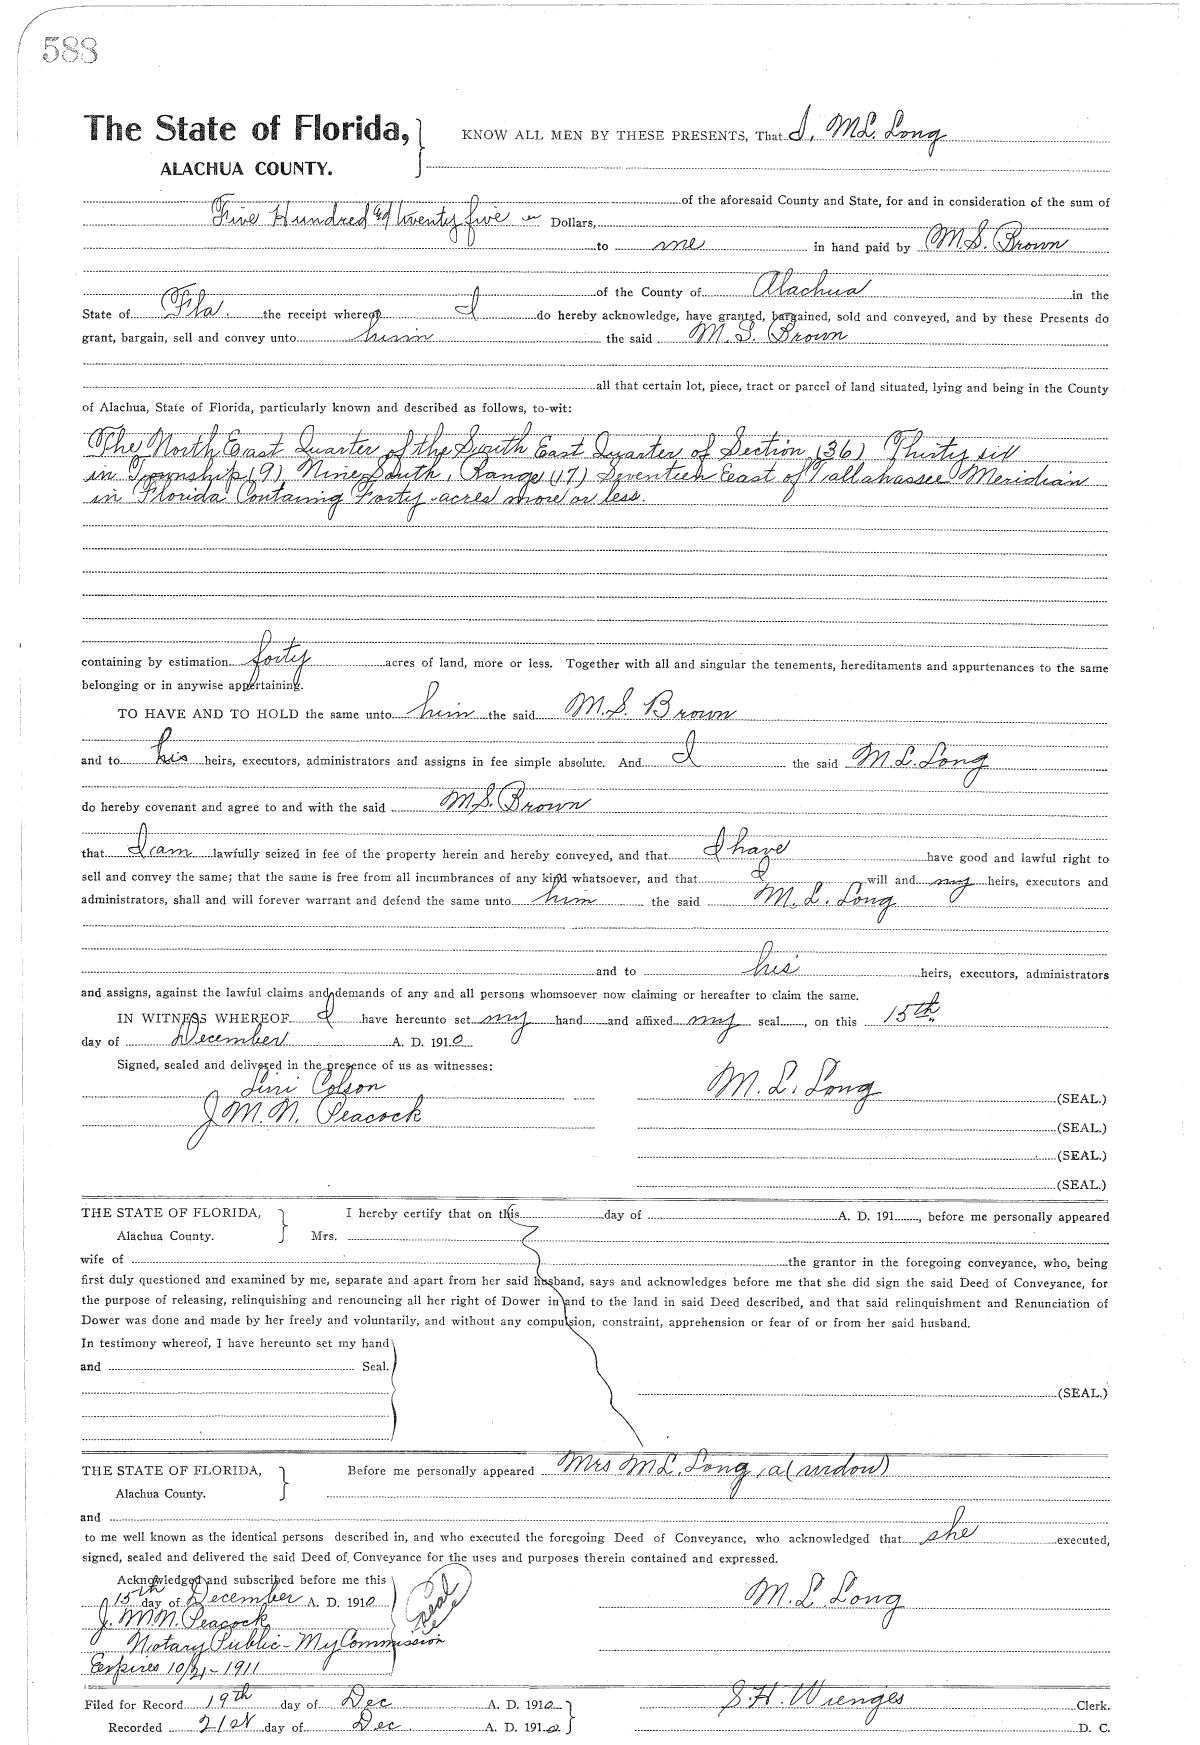 588
The State of Florida,
ALACHUA COUNTY.
KNOW ALL MEN BY THESE PRESENTS, That I, M L. Long
of the aforesaid County and State, for and in consideration of the sum of
Five Hundred and twenty five Dollars,
to me in hand paid by M. S. Brown
of the County of Alachua in the
State of Fla. the receipt whereof I do hereby acknowledge, have granted, bargained, sold and conveyed, and by these Presents do
grant, bargain, sell and convey unto him the said M. S. Brown
all that certain lot, piece, tract or parcel of land situated, lying and being in the County
of Alachua, State of Florida, particularly known and described as follows, to-wit:
The North East Quarter of the South East Quarter of Section (36) Thirty six
in Township (9) Nine South, Range (17) Seventeen East of Tallahassee Meridian
in Florida Containing Forty acres more or less.
containing by estimation forty acres of land, more or less. Together with all and singular the tenements, hereditaments and appurtenances to the same
belonging or in anywise appertaining.
TO HAVE AND TO HOLD the same unto him the said M. S. Brown
and to his heirs, executors, administrators and assigns in fee simple absolute. And I the said M. L. Long
do hereby covenant and agree to and with the said M. S. Brown
that I am lawfully seized in fee of the property herein and hereby conveyed, and that I have have good and lawful right to
sell and convey the same; that the same is free from all incumbrances of any kind whatsoever, and that I will and my heirs, executors and
administrators, shall and will forever warrant and defend the same unto him the said M. L. Long
and to his heirs, executors, administrators
and assigns, against the lawful claims and demands of any and all persons whomsoever now claiming or hereafter to claim the same.
IN WITNESS WHEREOF I have hereunto set my hand and affixed my seal, on this 15th
day of December A. D. 1910
Signed, sealed and delivered in the presence of us as witnesses:
Colson
M. L. Long (SEAL.)
J M. N. Peacock
(SEAL.)
(SEAL.)
(SEAL.)
THE STATE OF FLORIDA,
Alachua County.
I hereby certify that on this day of A. D. 191 , before me personally appeared
Mrs.
wife of the grantor in the foregoing conveyance, who, being
first duly questioned and examined by me, separate and apart from her said husband, says and acknowledges before me that she did sign the said Deed of Conveyance, for
the purpose of releasing, relinquishing and renouncing all her right of Dower in and to the land in said Deed described, and that said relinquishment and Renunciation of
Dower was done and made by her freely and voluntarily, and without any compulsion, constraint, apprehension or fear of or from her said husband.
In testimony whereof, I have hereunto set my hand
and Seal.
(SEAL.)
THE STATE OF FLORIDA,
Alachua County.
Before me personally appeared Mrs M L. Long, a (widow)
and
to me well known as the identical persons described in, and who executed the foregoing Deed of Conveyance, who acknowledged that she executed,
signed, sealed and delivered the said Deed of Conveyance for the uses and purposes therein contained and expressed.
Acknowledged and subscribed before me this
15th day of December A. D. 1910
Seal
M. L. Long
J. M. N. Peacock
Notary Public - My Commission
Expires 10/21-1911
Filed for Record 19th day of Dec A. D. 1910
S. H. Wienges Clerk.
Recorded 21st day of Dec A. D. 1910
D. C.